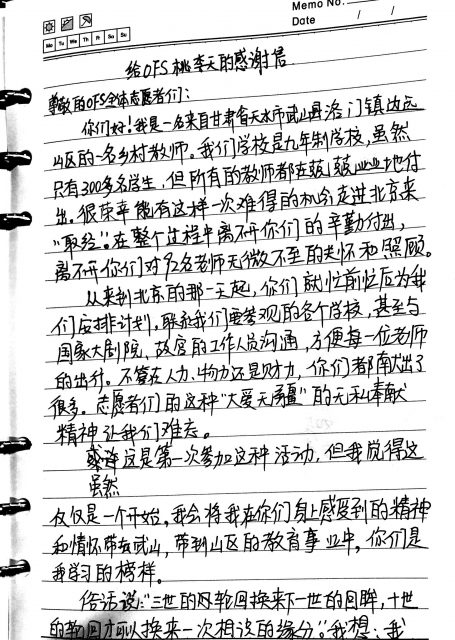 Memo No.
Date / /
Mo Tu We Th Fr Sa Su
给OFS桃李天的感谢信
尊敬的OFS全体志愿者们:
你们好!我是一名来自甘肃省天水市武山县洛门镇边远
山区的一名乡村教师。我们学校是九年制学校,虽然
只有300多名学生,但所有的教师都在兢兢业业地付
出。很荣幸能有这样一次难得的机会走进北京来
“取经”。在整个过程中离不开你们的辛勤付出,
离不开你们对92名老师无微不至的关怀和照顾。
从来到北京的那一天起,你们就忙前忙后为我
们安排计划,联系我们要参观的各个学校,甚至与
国家大剧院、故宫的工作人员沟通,方便每一位老师
的出行。不管在人力、物力还是财力,你们都付出了
很多。志愿者们的这种“大爱无疆”的无私奉献
精神让我们难忘。
这是第一次参加这种活动,但我觉得这
虽然
仅仅是一个开始。我会将我在你们身上感受到的精神
和情怀带去武山,带到山区的教育事业中。你们是
我学习的榜样。
俗话说:“三世的风轮回换来下一世的回眸,十世
的轮回才可以换来一次相识的缘分”我想:我